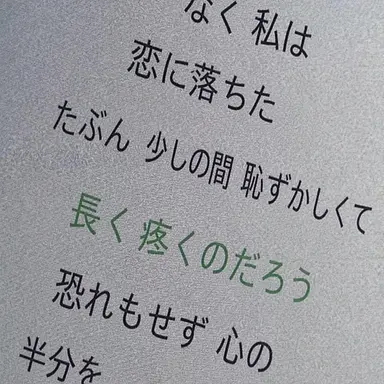 なく 私は
恋に落ちた
たぶん 少しの間 恥ずかしくて
長く 疼くのだろう
恐れもせず 心の
半分を